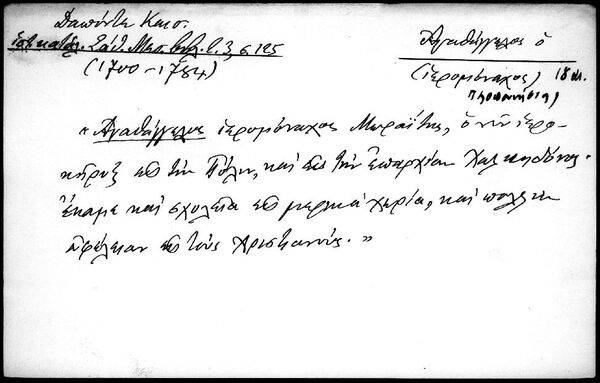 Δαπόντε Καισ.
ἱστ. κατάλ. Σάθ. Μεσ. Βιβλ. τ. 3, σ 125
(1700-1784)
Ἀγαθάγγελος ὁ
(ἱερομόναχος) 18 αι.
Πελοποννήσιος
« Ἀγαθάγγελος ἱερομόναχος Μωραΐτης, ὁ νῦν ἱερο-
κήρυξ εἰς τὴν Πόλιν, καὶ εἰς τὴν ἐπαρχίαν Χαλκηδόνος.
Ἔκαμε καὶ σχολεῖα εἰς μερικὰ χωρία, καὶ πολλὴν
ὠφέλειαν εἰς τοὺς Χριστιανούς. »